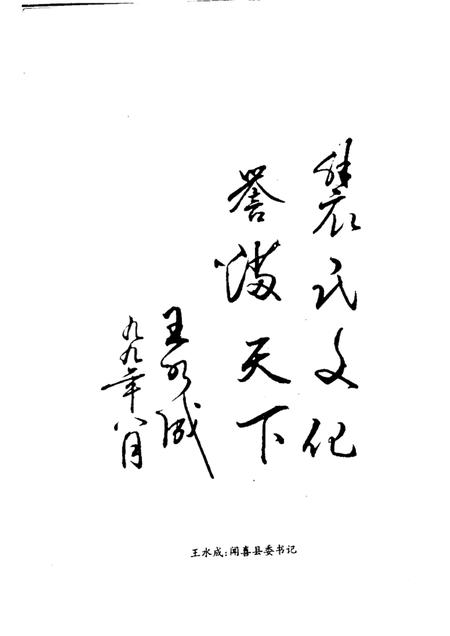 裴氏文化
誉满天下
王水成
九九年八月
王水成：闻喜县委书记